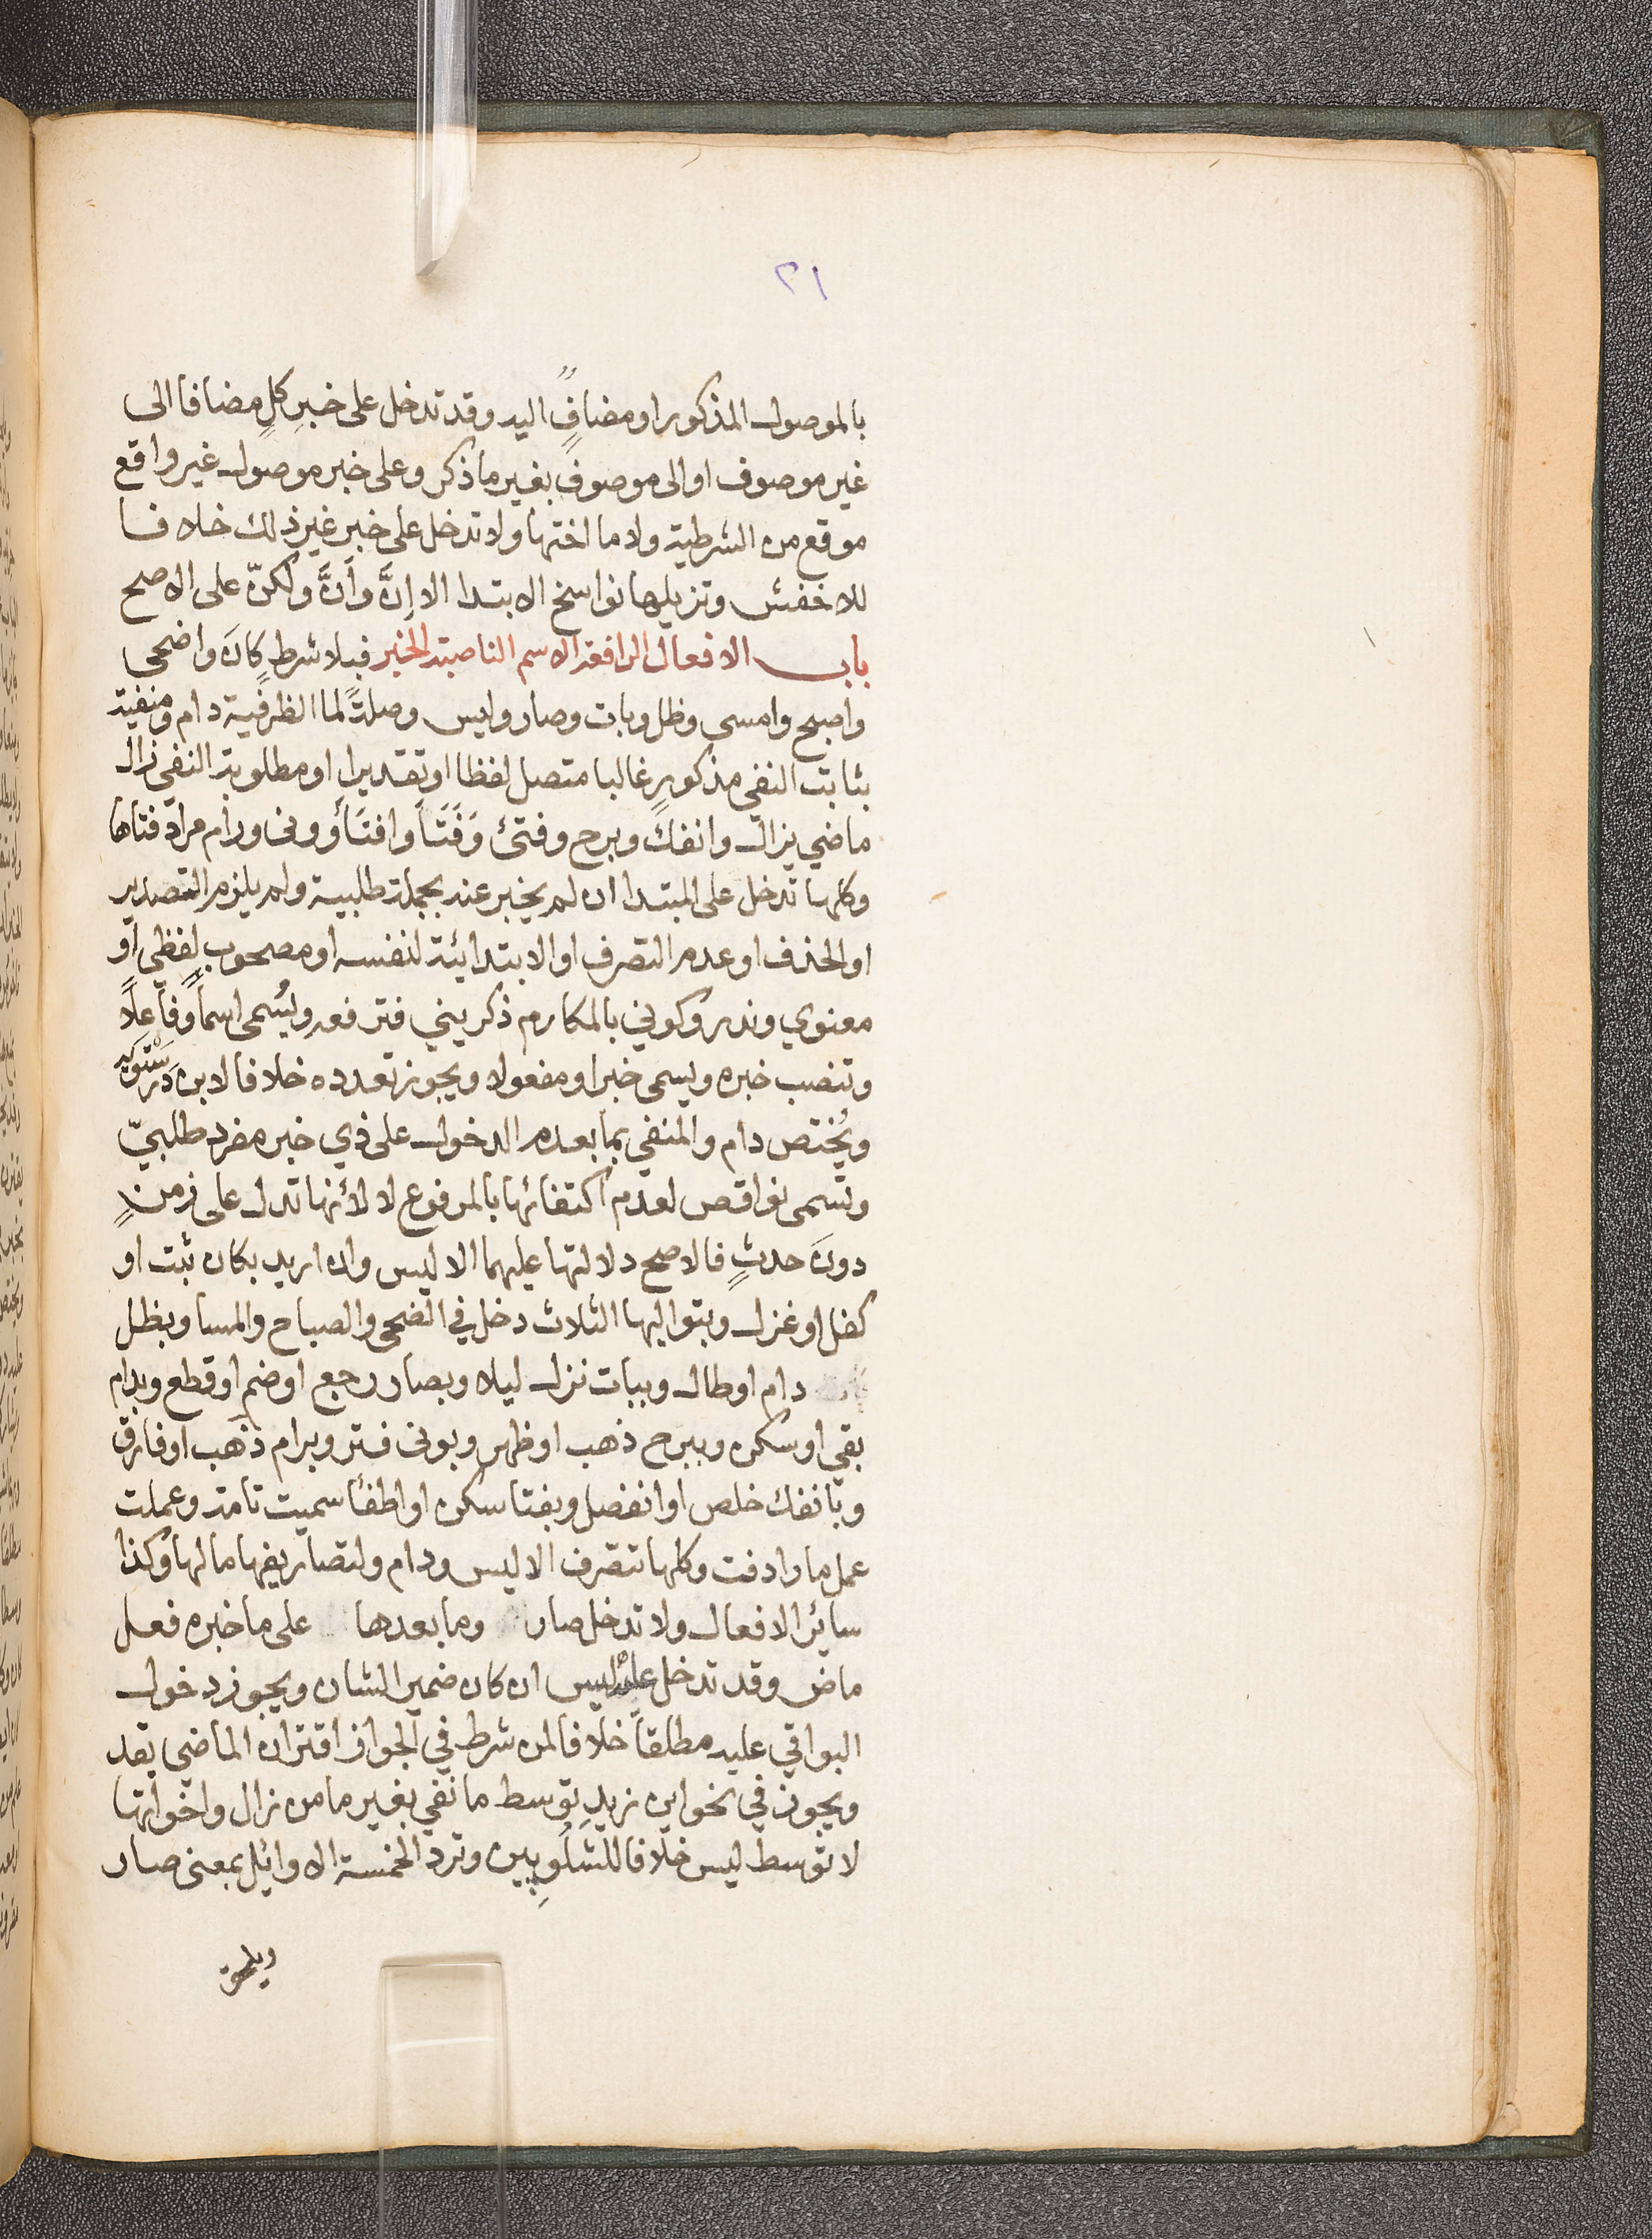 ٢١
بالموصول المذكور او مضافٍ اليه وقد تدخل على خبرِ كلٍ مضافا الى
غير موصوف او الى موصوفٍ بغير ما ذكر وعلى خبر موصول غير واقع
موقع من الشرطية ولا ما اختها ولا تدخل على خبر غير ذلك خلافا
للاخفش وتزيلها نواسخ الابتدا الا إنَّ وأَنَّ ولكنّ على الاصح
باب الافعال الرافعة الاسم الناصبة الخبر فبلا شرطٍ كانَ واضحى
واصبح وامسى وظل وبات وصار وليس وصلةً لما الظرفية دام ومنفية
بثابت النفي مذكورٍ غالبا متصل لفظا او تقديرا او مطلوبة النفي زال
ماضي يزال وانفكَ وبرح وفتئ وَفَتَأَ وافتَأَ وونى ورام مرادفتاها
وكلها تدخل على المبتدا ان لم يخبر عنه بجملة طلبية ولم يلزم التصدير
او الحذف او عدم التصرف او الابتدائية لنفسه او مصحوبٍ لفظي او
معنوي وندر وكوني بالمكارم ذكريني فترفعه ويُسمى اسماً وفاعلاً
وتنصب خبره ويسمى خبرا ومفعولا ويجوز تعدده خلافا لابن دَرَسْتَوَيه
ويُختص دام والمنفي بما بعدم الدخول على ذي خبر مفرد طلبيّ
وتسمى نواقص لعدم اكتفائها بالمرفوع لا لأنها تدل على زمنٍ
دونَ حدثٍ فالاصح دلالتها عليهما الا ليس وان اريد بكان ثبت او
كفل او غزل وبتواليها الثلاث دخل في الضحى والصباح والمسا وبظل
دام او طال وببات نزل ليلا وبصار رجع او ضم او قطع وبدام
بقي او سكن وببرح ذهب او ظهر وبونى فتر وبرام ذهب او فارق
وبانفك خلص او انفصل وبفتا سكن او اطفأ سميت تامة وعملت
عمل ما رادفت وكلها تتصرف الا ليس ودام ولتصاريفها مالها وكذا
سائر الافعال ولا تدخل صار وما بعدها على ما خبره فعل
ماض وقد تدخل عليه ليس ان كان ضمير الشان ويجوز دخول
البواقي عليه مطلقاً خلافا لمن شرط في الجواز اقتران الماضي بقد
ويجوز في نحو اين زيدٍ توسط ما نفي بغير ما من زال واخواتها
لا توسط ليس خلافا للشلُوبِين وترد الخمسة الاوائل بمعنى صار
ويلحق